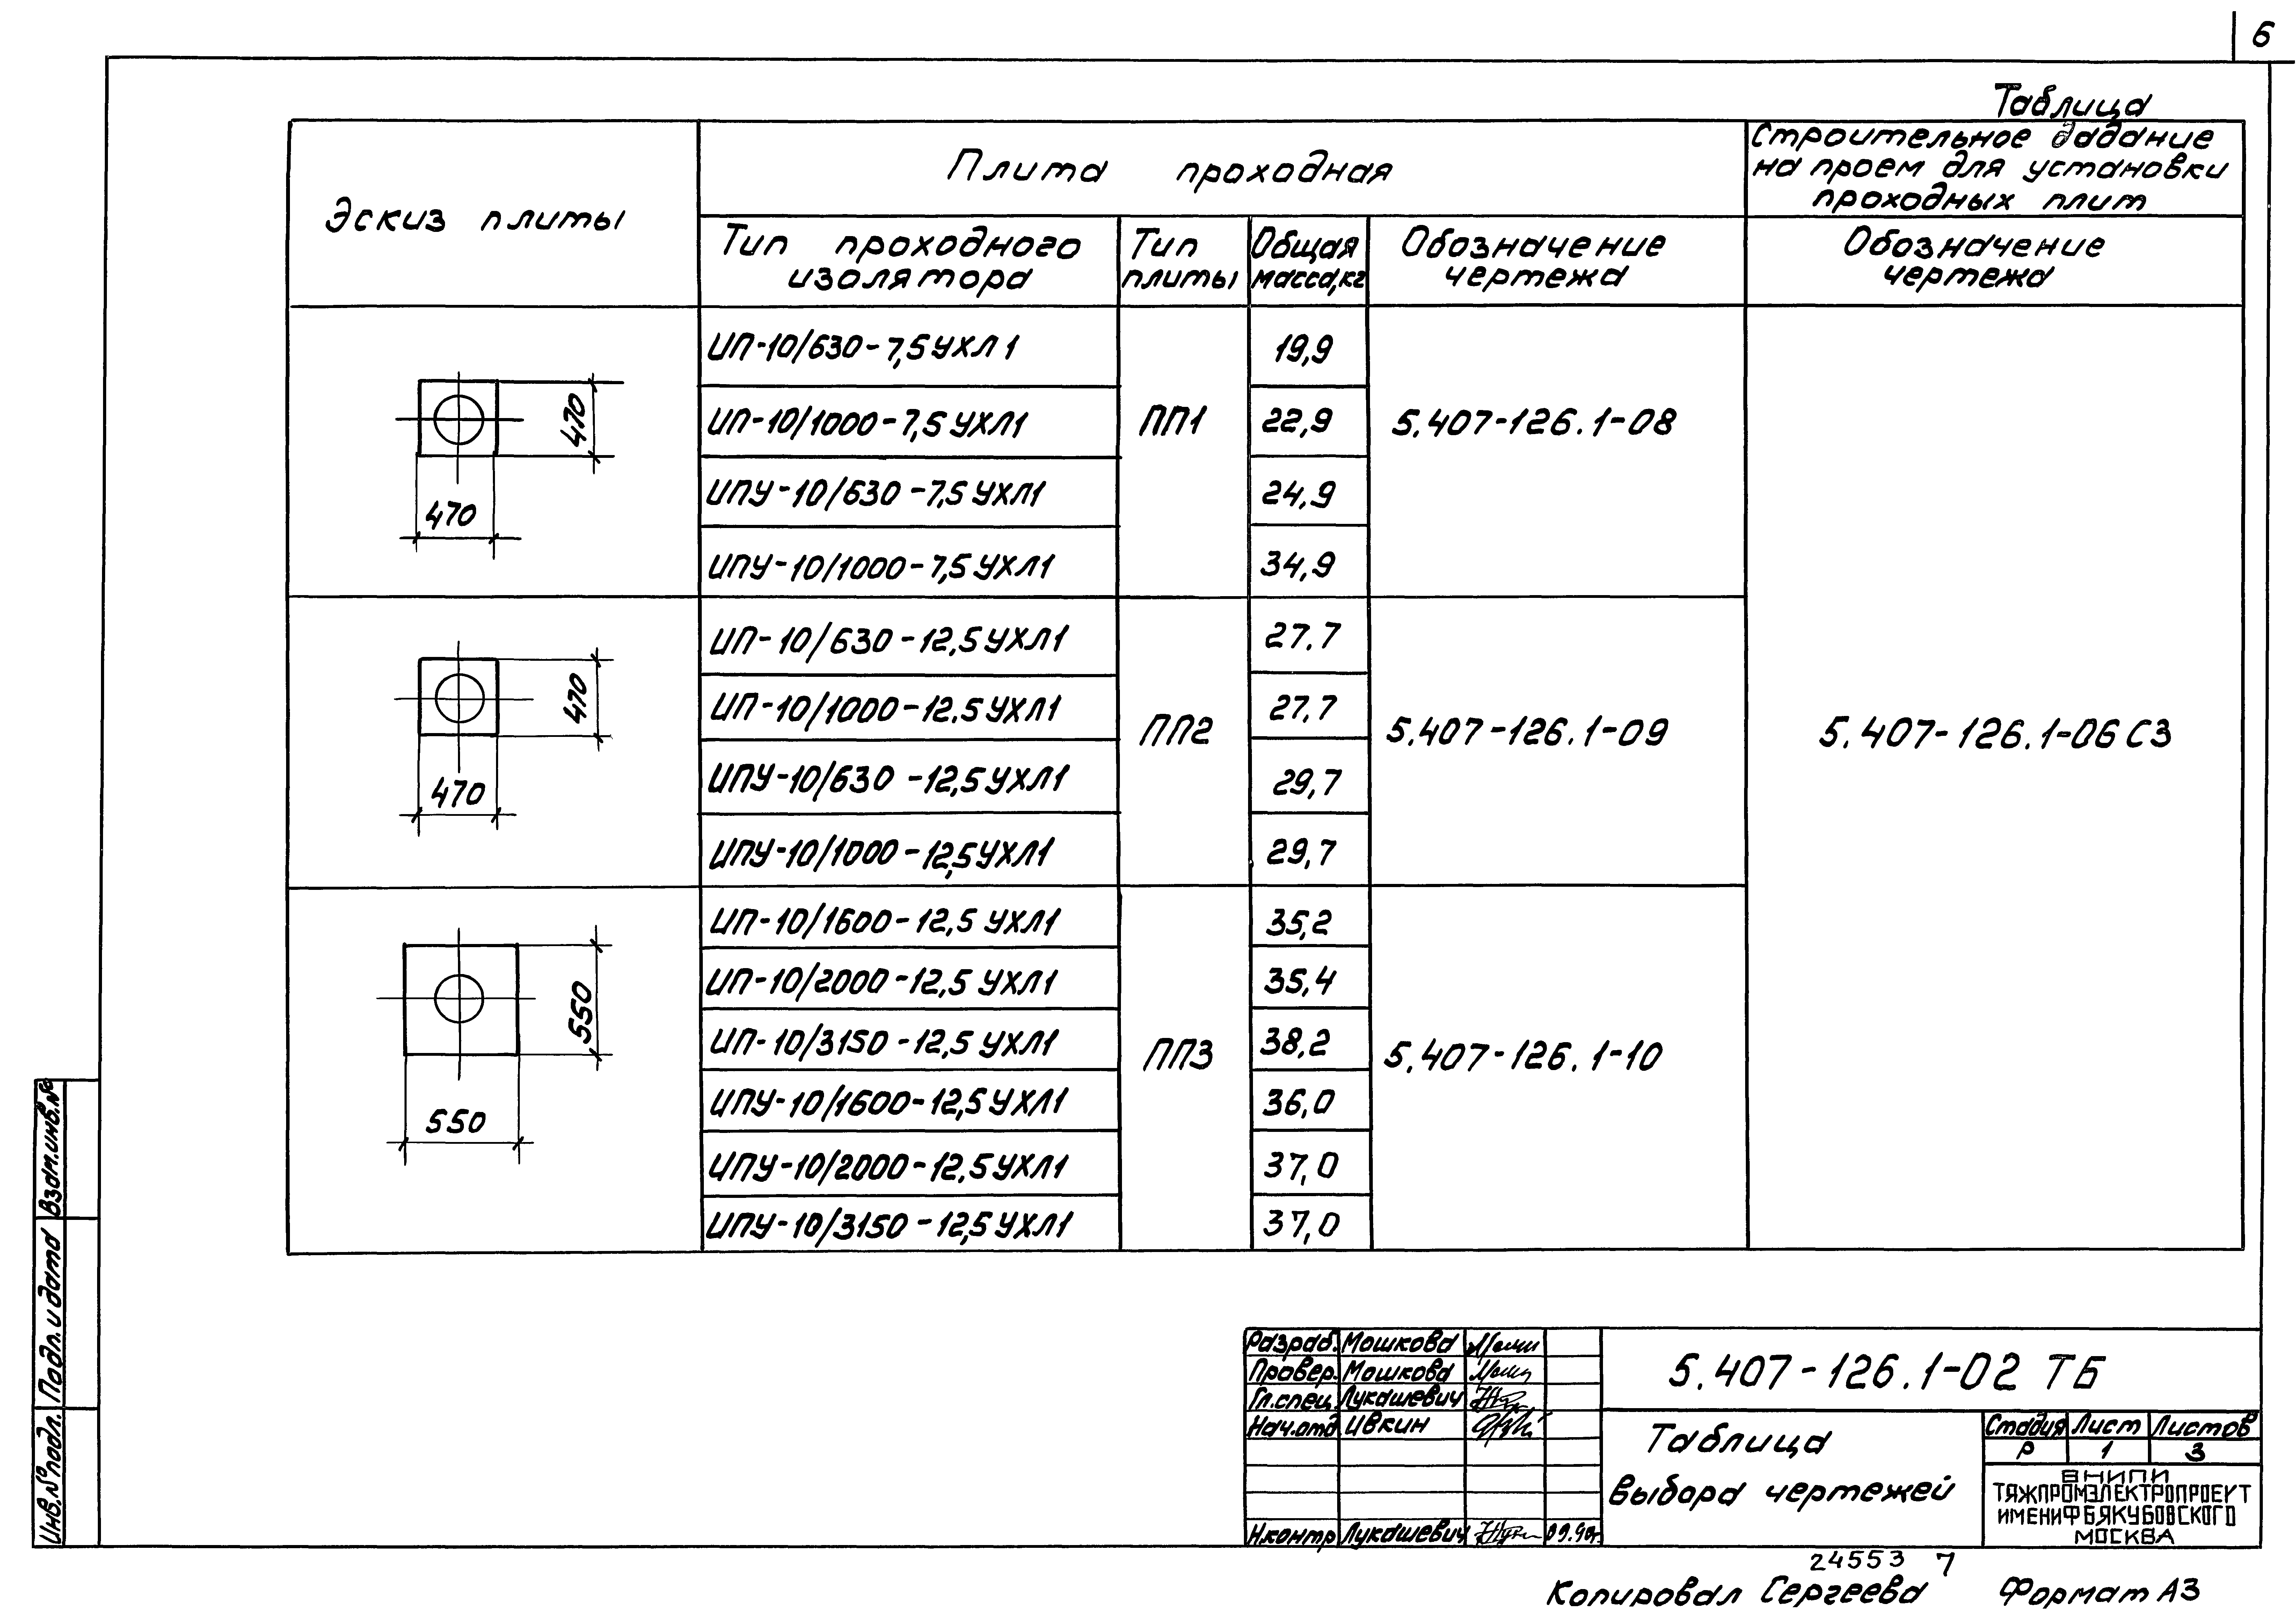 6
Таблица
Эскиз плиты
Плита проходная
Строительное задание
на проем для установки
проходных плит
Тип проходного
изолятора
Тип
плиты
Общая
масса,кг
Обозначение
чертежа
Обозначение
чертежа
470
470
ИП-10/630-7,5УХЛ1 19,9
ИП-10/1000-7,5УХЛ1 ПП1 22,9 5.407-126.1-08
ИПУ-10/630-7,5УХЛ1 24,9
ИПУ-10/1000-7,5УХЛ1 34,9
470
470
ИП-10/630-12,5УХЛ1 27.7
ИП-10/1000-12.5УХЛ1 27,7
ПП2 5.407-126.1-09 5.407-126.1-06 СЗ
ИПУ-10/630-12,5УХЛ1 29,7
ИПУ-10/1000-12,5УХЛ1 29,7
550
550
ИП-10/1600-12,5 УХЛ1 35,2
ИП-10/2000-12,5 УХЛ1 35,4
ИП-10/3150-12,5 УХЛ1 ПП3 38,2 5.407-126.1-10
ИПУ-10/1600-12,5УХЛ1 36,0
ИПУ-10/2000-12,5УХЛ1 37,0
ИПУ-10/3150-12,5УХЛ1 37,0
Взам.инв.№
Подп. и дата
Инв.№ подл.
Разраб. Мошкова
Провер. Мошкова
Гл.спец. Лукашевич
Нач.отд. Ивкин
Н.контр. Лукашевич 09.90г.
5.407-126.1-02 ТБ
Таблица
выбора чертежей
Стадия Лист Листов
Р 1 3
ВНИПИ
ТЯЖПРОМЭЛЕКТРОПРОЕКТ
ИМЕНИ Ф Б ЯКУБОВСКОГО
МОСКВА
24553 7
Копировал Сергеева Формат А3